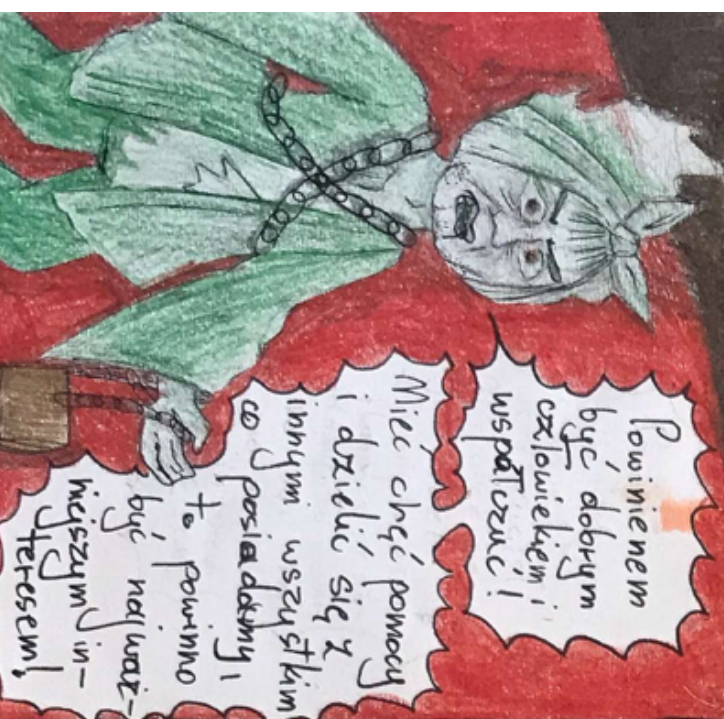 Powinienem
być dobrym
człowiekiem i
współczuć!
Mieć chęć pomocy
i dzielić się z
innymi wszystkim
co posiadamy,
to powinno
być najważ-
niejszym in-
teresem!